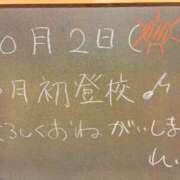 0月2日(
月初登校♪
ろしくおねがいしま
れい